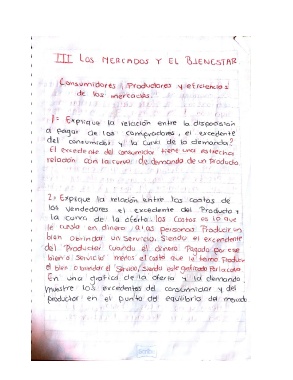 III LOS MERCADOS Y EL BIENESTAR
Consumidores, Productores y eficiencias
de los mercados.
1= Explique la relación entre la disposición
a pagar de los compradores, el excedente
del consumidor y la curva de la demanda?
El excedente del consumidor tiene una estrecha
relación con la curva de demanda de un producto
2: Explique la relación entre los costos de
los vendedores el excedente del Productor y
la curva de la oferta: Los Costos es lo que
le cuesta en dinero a las personas Producir un
bien o brindar un Servicio. Siendo el excendente
del Productor Cuando el dinero Pagado por ese
bien o Servicio menos el coste que le tomo Producir
el bien o brindar el Servicio, Siendo este graficado Por la curva
En una grafica de la oferta y la demanda,
muestre los excedentes del consumidor y del
productor en el punto de equilibrio del mercado